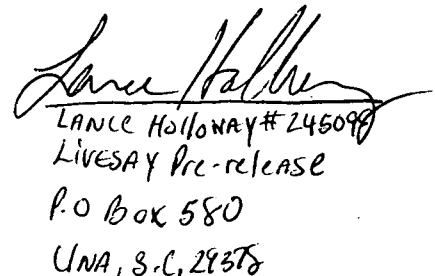 Lance Holloway
LANCE HOllOWAY # 245098
LIVESAY Pre-release
P.O Box 580
UNA, S.C, 29378